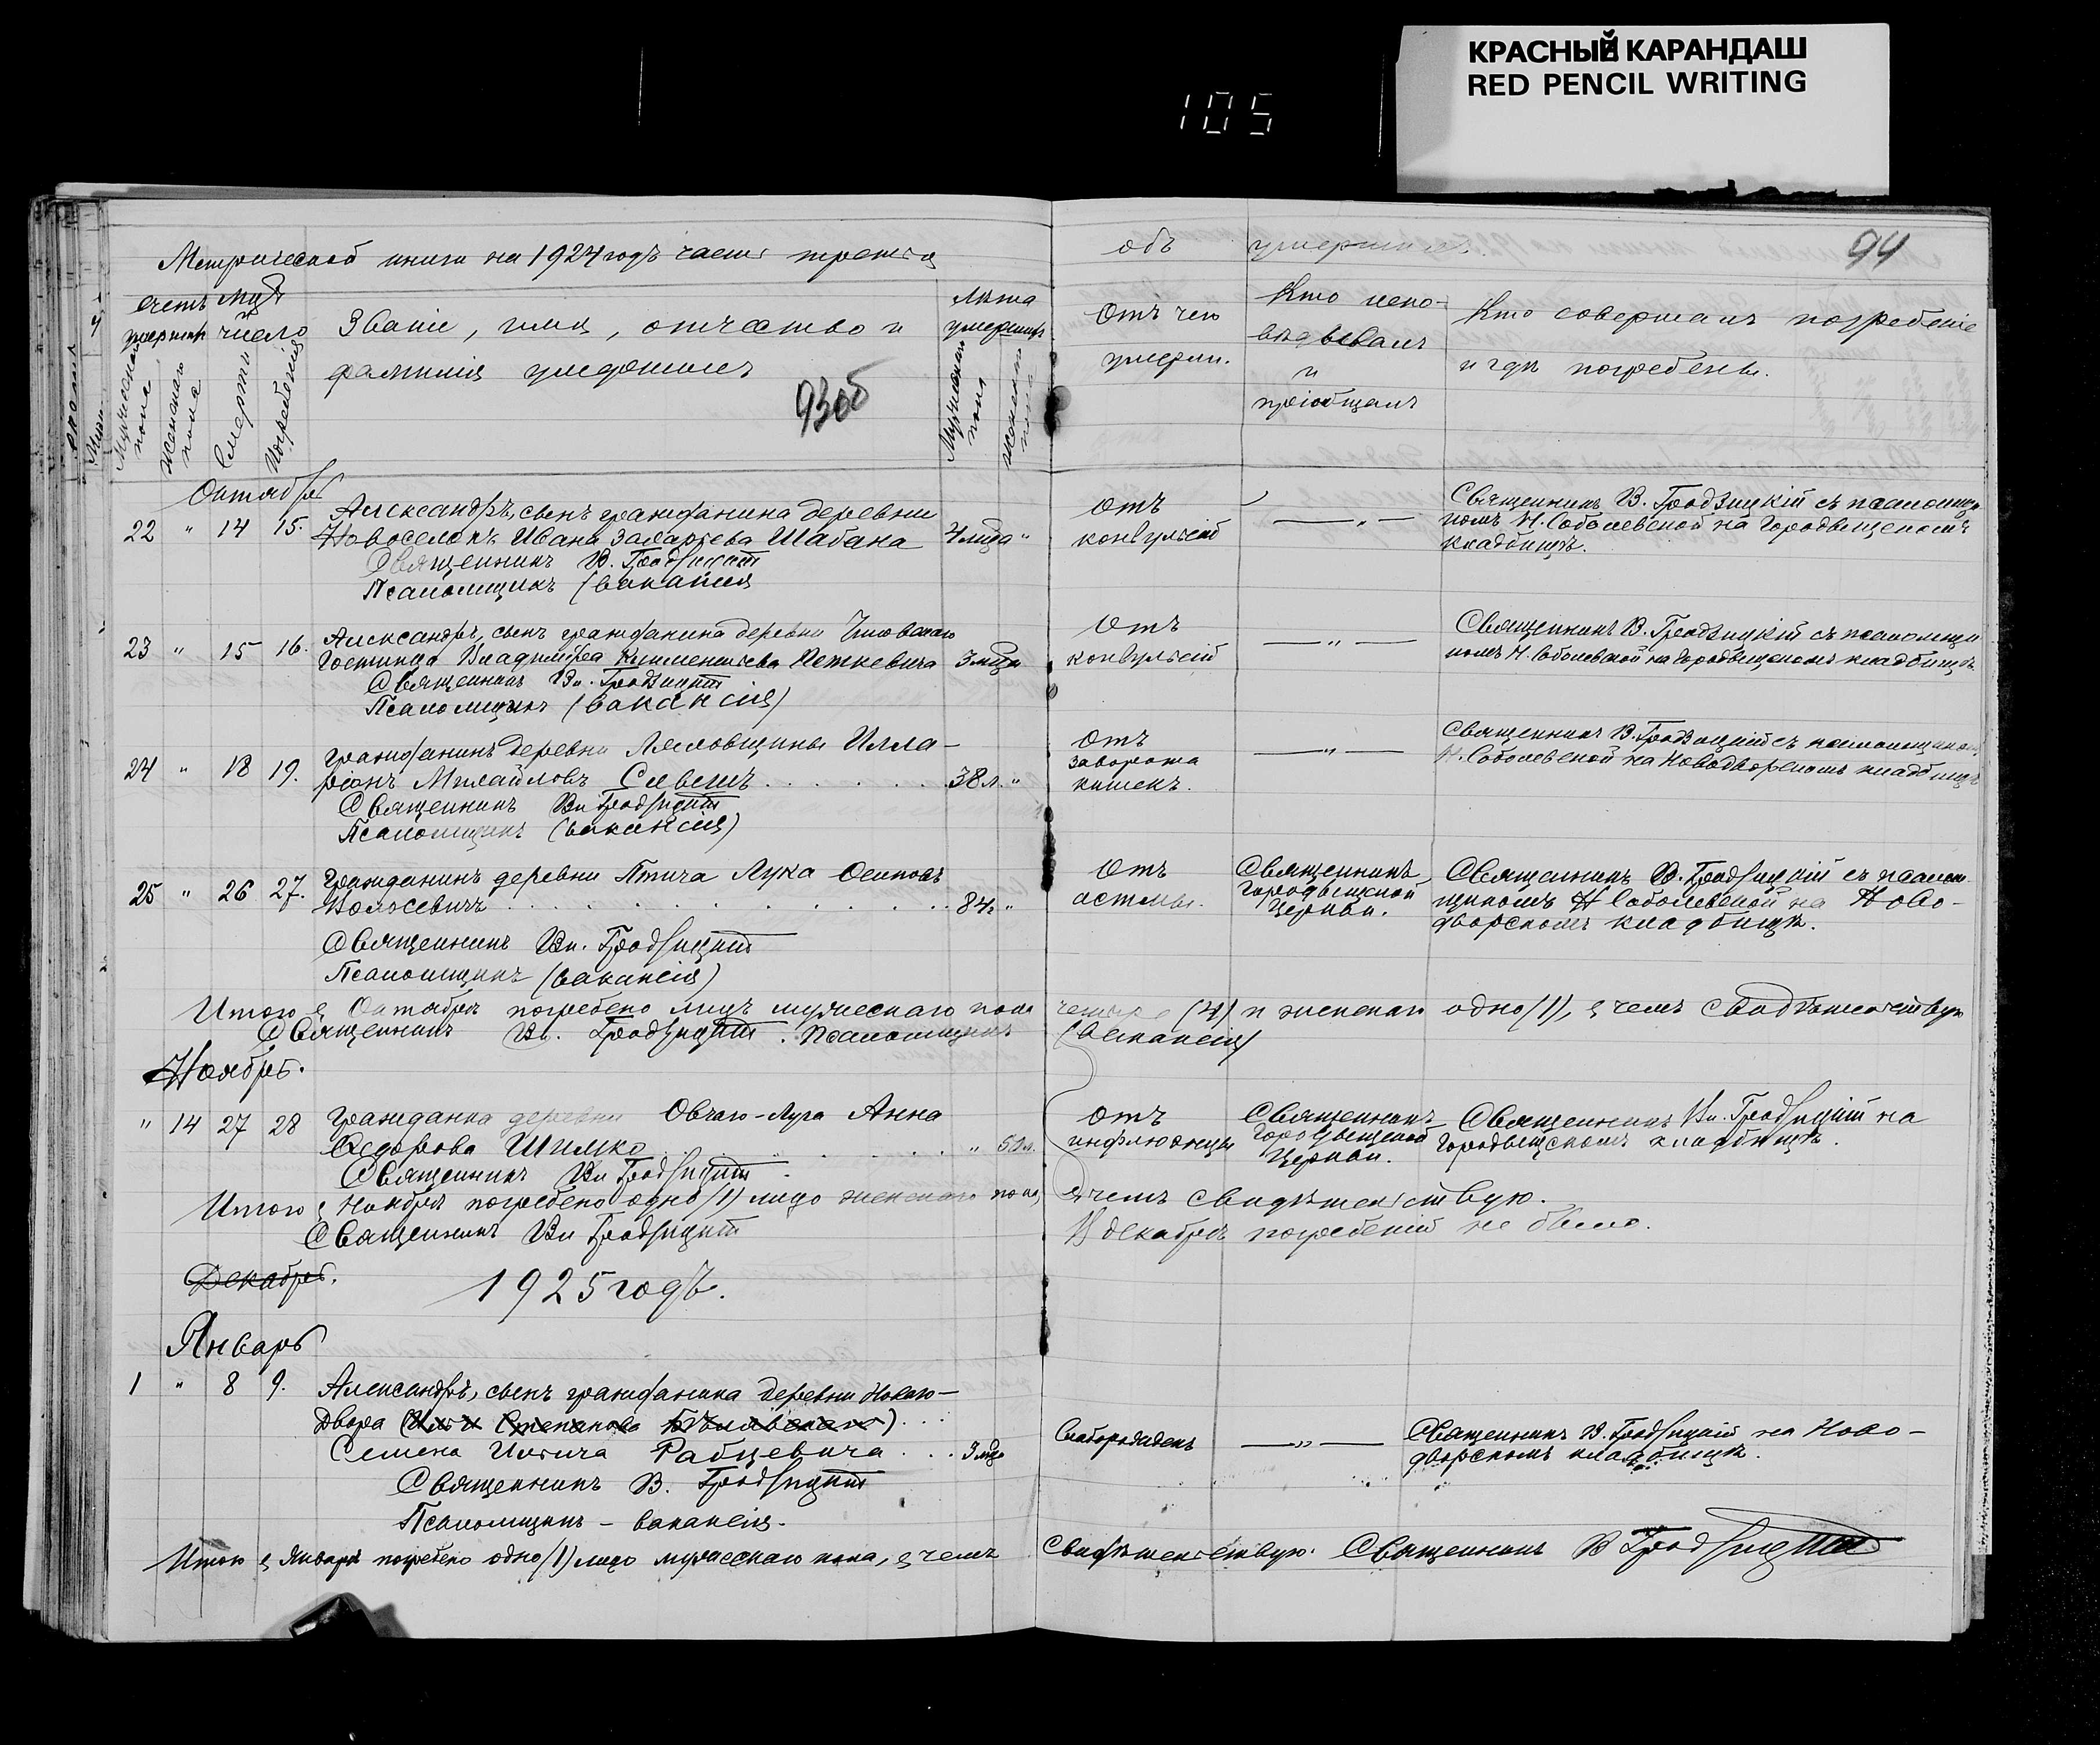 КРАСНЫЙ КАРАНДАШ
RED PENCIL WRITING
105
Метрической книги на 1924 годъ часть третья
объ умершихъ.
94
Счетъ умершихъ
Мужескаго пола
Женскаго пола
Мѣс. и число
Смерти
Погребенія
Званіе, имя, отчество и
фамилія умершихъ
93об
Лѣта умершихъ
Мужескаго пола
Женскаго пола
Отъ чего
умерли.
Кто испо-
вѣдывалъ
и
пріобщалъ
Кто совершалъ погребеніе
и гдѣ погребены.
Октябрь
22 " 14 15. Александръ, сынъ гражданина деревни
Новоселокъ Ивана Захарьева Шабана 4 мѣца "
Священникъ В. Гродзицкій
Псаломщикъ (вакансія
отъ
конвульсій
— " —
Священникъ В. Гродзицкій съ псаломщи-
комъ Н. Соболевской на Городыщскомъ
кладбищѣ.
23 " 15 16. Александръ, сынъ гражданина деревни
Гостинца Владиміра Климентьева Петкевича 3 мѣца
Священникъ Вл. Гродзицкій
Псаломщикъ (вакансія)
Отъ
конвульсій
— " —
Священникъ В. Гродзицкій съ псаломщи-
комъ Н. Соболевской на Городыщскомъ кладбищѣ
24 " 18 19. Гражданинъ деревни Лясковщины Илла-
ріонъ Михайловъ Сивецъ 38 л. "
Священникъ Вл Гродзицкій
Псаломщикъ (вакансія)
Отъ
заворота
кишекъ.
— " —
Священникъ В. Гродзицкій съ псаломщикомъ
Н. Соболевской на Новодворскомъ кладбищѣ
25 " 26 27. Гражданинъ деревни Птича Лука Осиповъ
Колосевичъ 84 "
Священникъ Вл. Гродзицкій
Псаломщикъ (вакансія)
Отъ
астмы.
Священникъ
Городыщской
Церкви.
Священникъ В. Гродзицкій съ псалом-
щикомъ Н Соболевской на Ново-
дворскомъ кладбищѣ.
Итого въ Октябрѣ погребено лицъ мужескаго пола четыре (4) и женскаго одно (1), въ чемъ свидѣтельствую
Священникъ Вл. Гродзицкій. Псаломщикъ (вакансія)
Ноябрь.
" 14 27 28 Гражданка деревни Овчаго-Луга Анна
Федорова Шимко " 50 л.
Священникъ Вл Гродзицкій
отъ
инфлюэнцы
Священникъ
Городыщской
Церкви.
Священникъ Вл. Гродзицкій на
Городыщскомъ кладбищѣ.
Итого въ Ноябрѣ погребено одно (1) лицо женскаго пола, въ чемъ свидѣтельствую.
Священникъ Вл Гродзицкій
В декабрѣ погребеній не было.
Декабрь.
1925 годъ.
Январь
1 " 8 9. Александръ, сынъ гражданина деревни Новаго-
Двора (Степанова)
Семена Ильича Рабцевича 3 мѣс
Священникъ В. Гродзицкій
Псаломщикъ - вакансія.
Слаборожденъ
— " —
Священникъ В. Гродзицкій на Ново-
дворскомъ кладбищѣ.
Итого въ Январѣ погребено одно (1) лицо мужескаго пола, въ чемъ свидѣтельствую. Священникъ В Гродзицкій